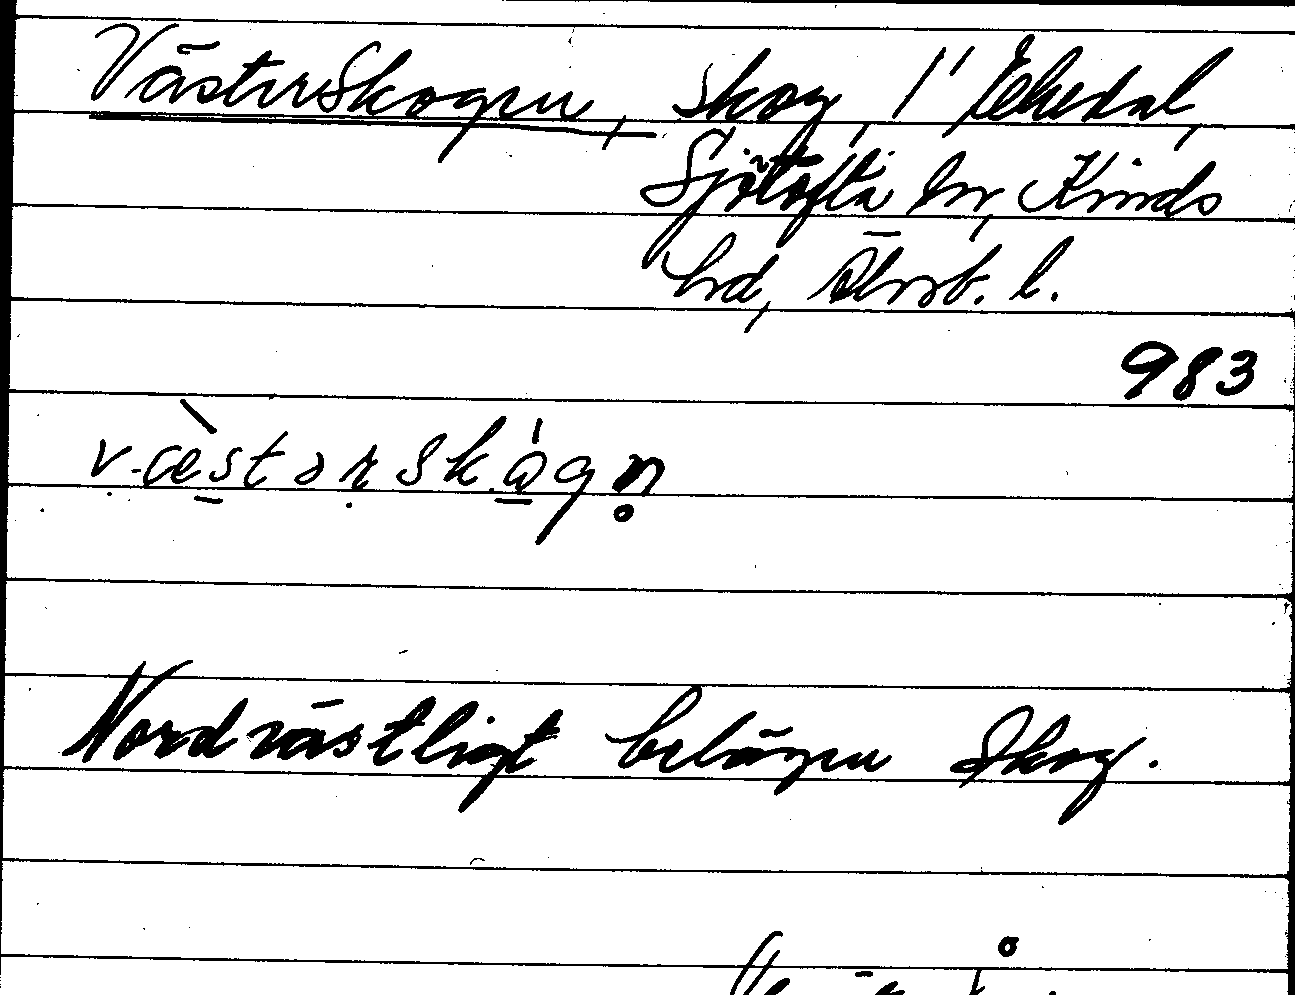 Västerskogen, skog, i Ekedal,
Sjötofta sn, Kinds
hd, Älvsb. l.
983
v.æ̀stərskȧgn̥
Nordvästligt belägen skog.